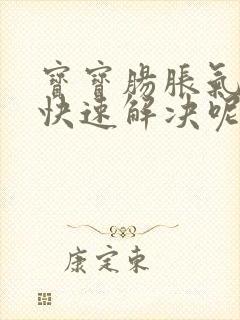 寶寶腸脹氣
快速解决呢
康定東